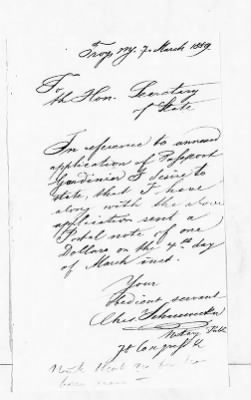 Troy NY. 7. March 1889.
To
the Hon. Secretary
of State
In reference to annexed
application of Passport
Gardinier I desire to
state, that I have
along with the above
application sent a
Postal note of one
Dollars on the 4th day
of March inst.
Your
Obedient servant
Chas.
Notary Publ
Congress St